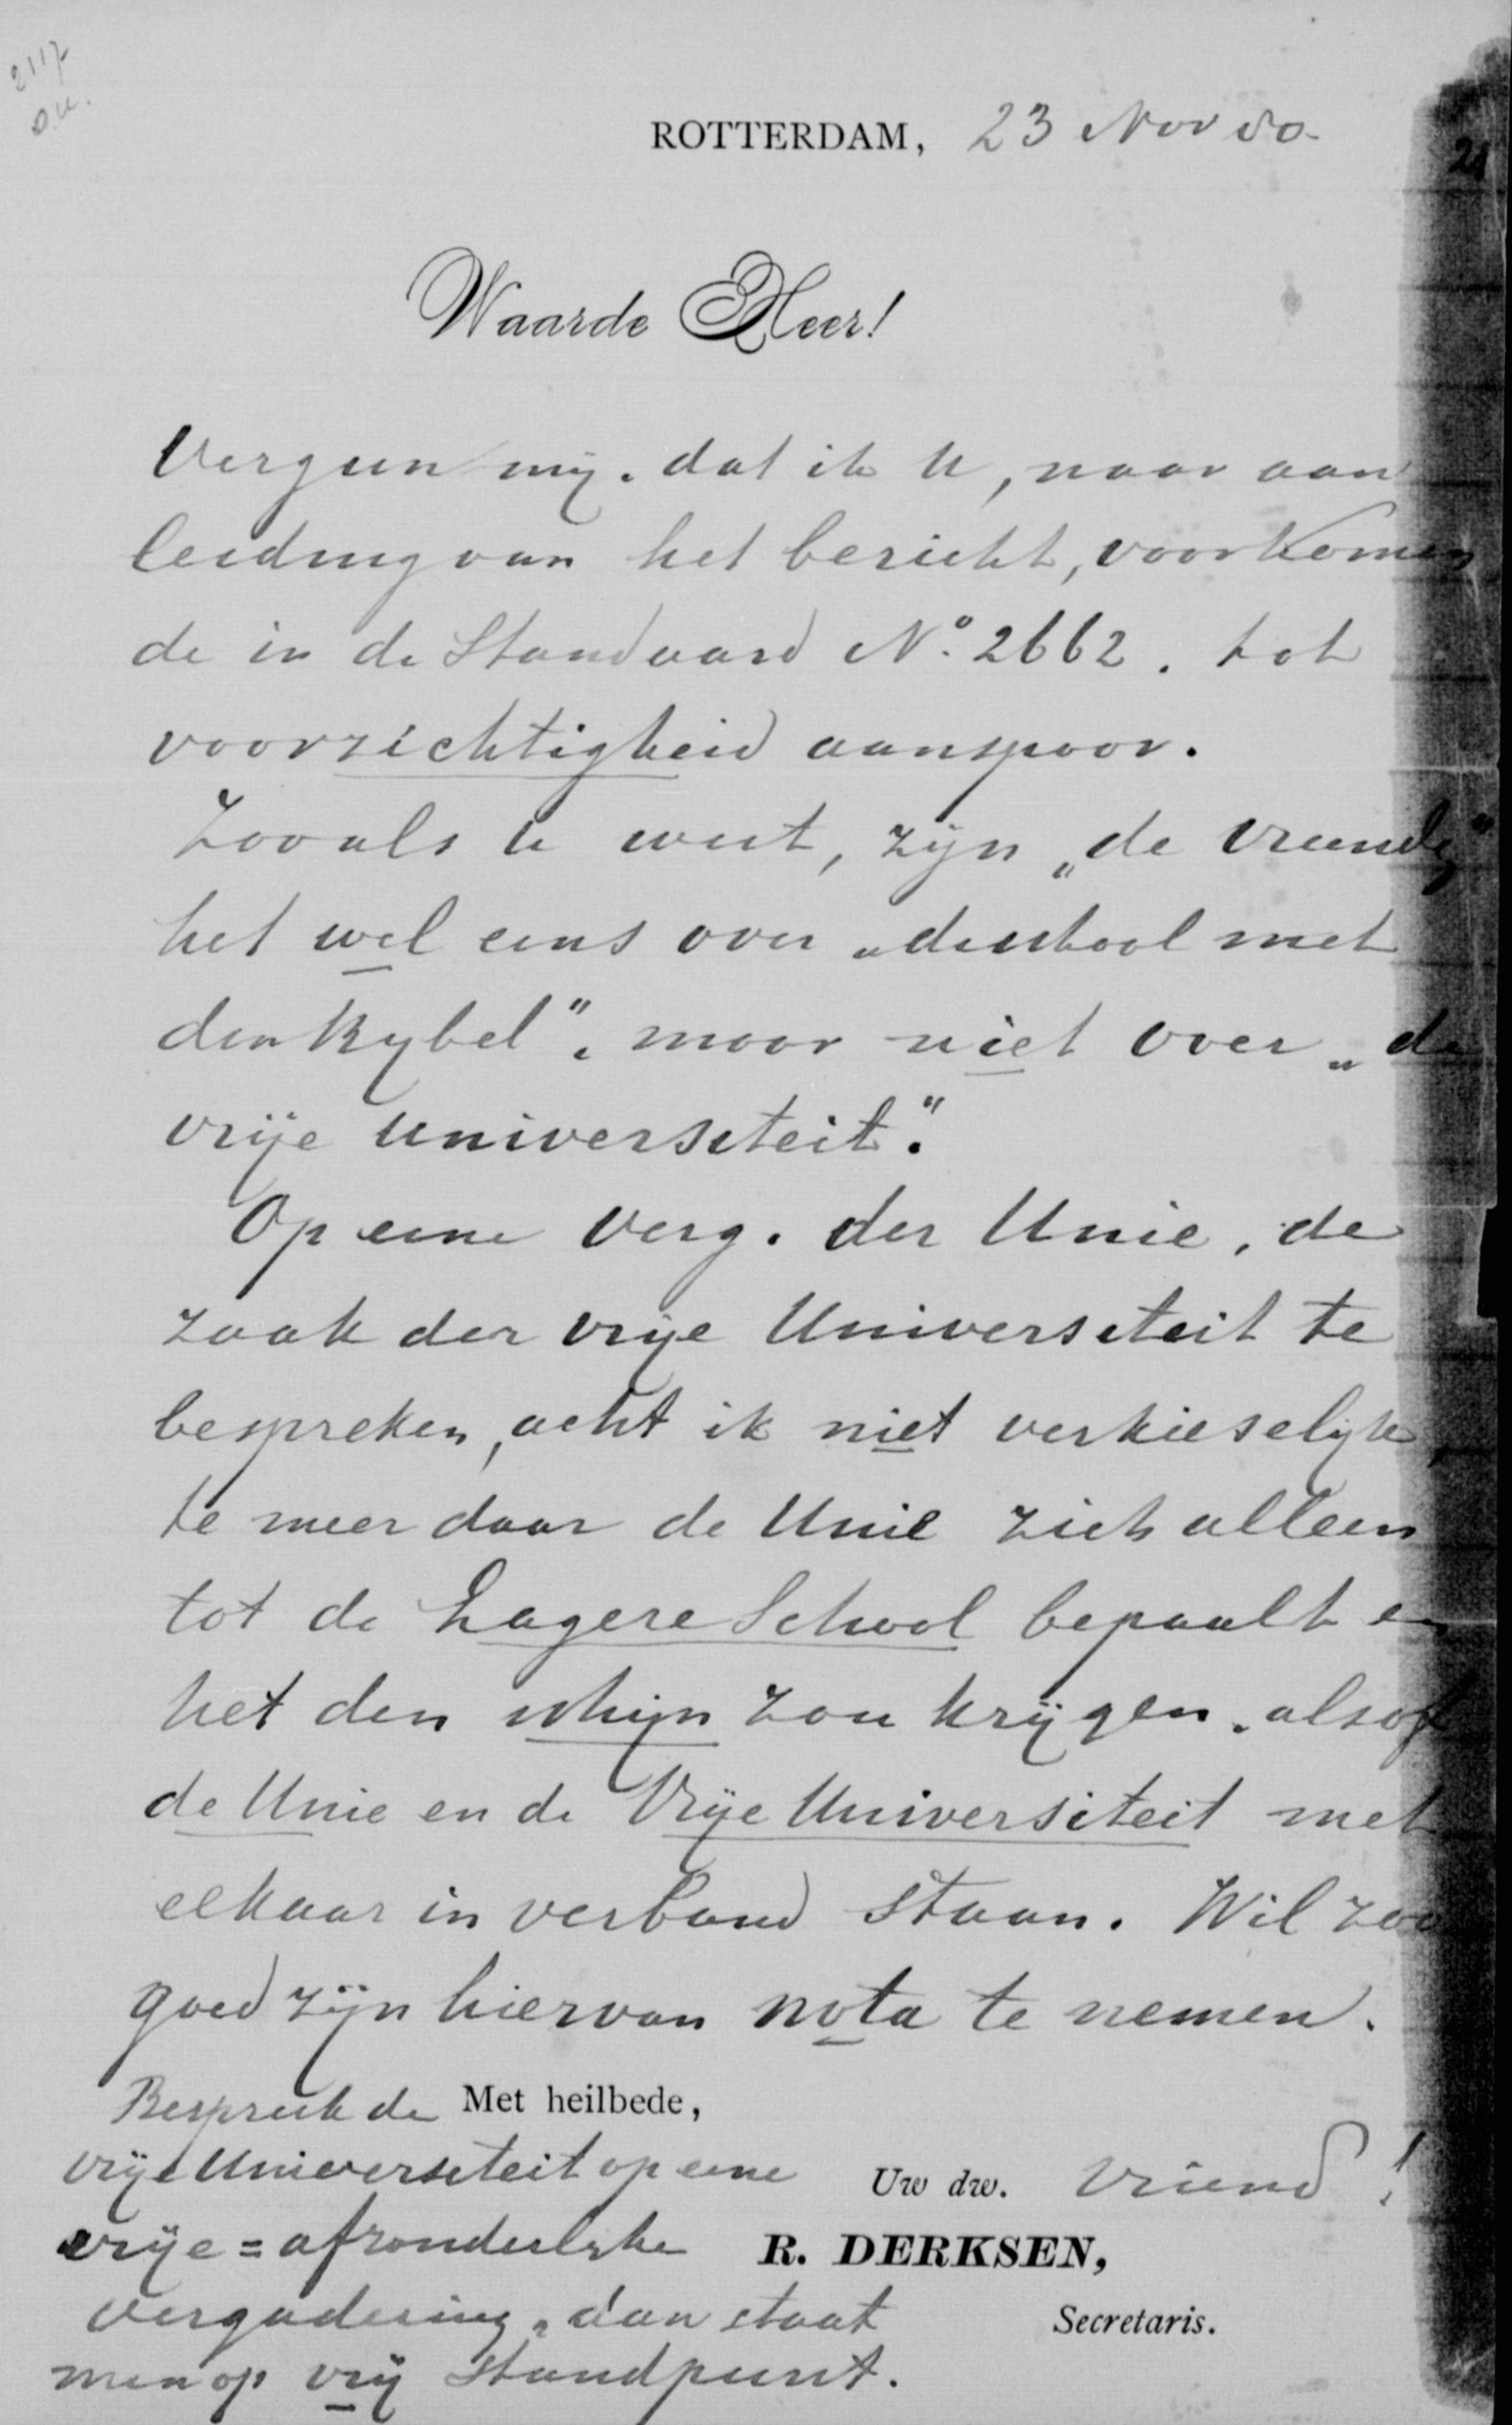 2117
O.U.
ROTTERDAM, 23 Nov 80.
21
Waarde Heer!
Vergun mij. dat ik U, naar aan
leiding van het bericht, voorkomen
de in de Standaard No. 2662. tot
voorzichtigheid aanspoor.
Zooals U weet, zijn „de vrienden"
het wel eens over „de school met
den Bybel", maar niet over „de
vrije universiteit."
Op eene verg. der Unie, de
zaak der vrije Universiteit te
bespreken, acht ik niet verkieselijk,
te meer daar de Unie zich alleen
tot de Lagere School bepaalt en
het den schijn zou krijgen, alsof
de Unie en de Vrije Universiteit met
elkaar in verband staan. Wil zoo
goed zijn hiervan nota te nemen.
Met heilbede,
Uw dw. Vriend!
R. DERKSEN,
Secretaris.
Bespreek de
vrije Universiteit op eene
vrije = afzonderlyke
vergadering, dan staat
men op vrij standpunt.